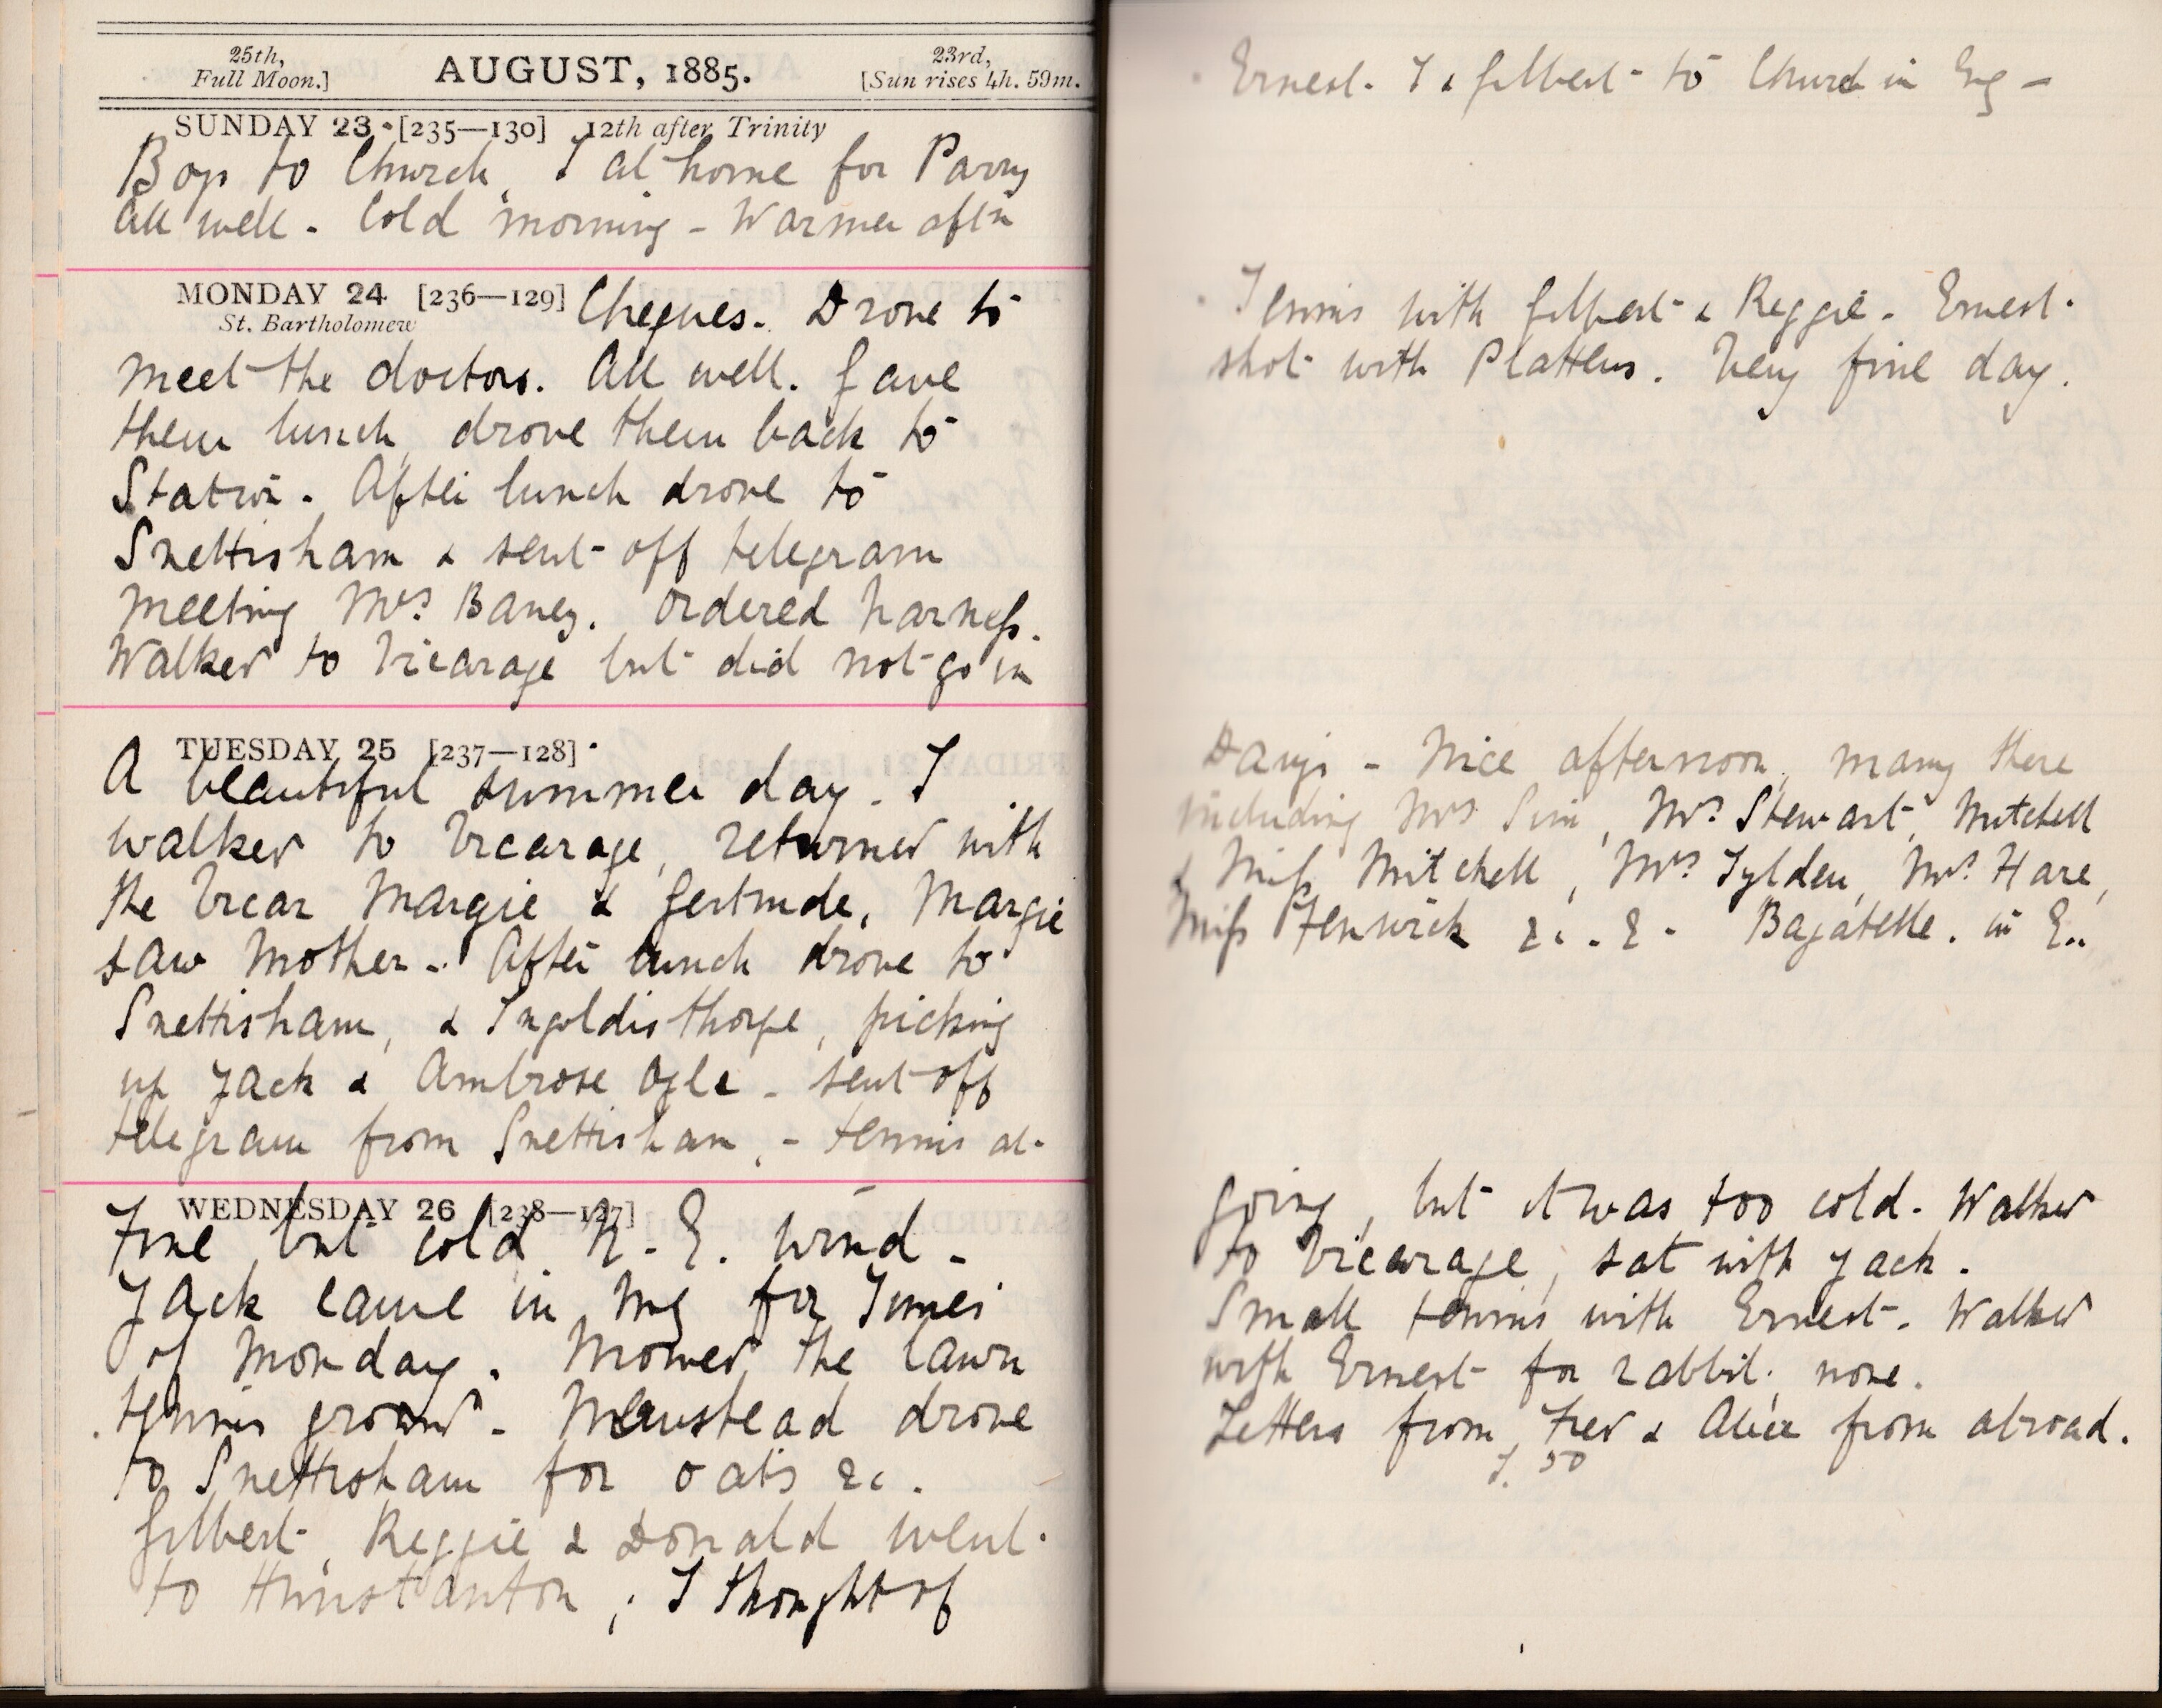 25th,
Full Moon.]
AUGUST, 1885.
23rd,
[Sun rises 4h. 59m.
SUNDAY 23 [235—130] 12th after Trinity
Boys to Church, I at home for Parry
All well - Cold morning - Warmer aftn
MONDAY 24 [236—129] Cheques. Drove to
St. Bartholomew
meet the doctors. All well. Gave
them lunch, drove them back to
Station. After lunch drove to
Snettisham & sent off telegram
meeting Mrs. . Ordered harness.
Walked to Vicarage but did not go in
TUESDAY 25 [237—128]
A beautiful summer day. I
walked to Vicarage, returned with
the Vicar Margie & Gertrude, Margie
saw Mother. After lunch drove to
Snettisham, & Ingoldisthorpe, picking
up Jack & Ambrose Ogle - sent off
telegram from Snettisham, - tennis at
WEDNESDAY 26 [238—127]
Fine but cold N. E. wind -
Jack came in mg for Times
of Monday. Mowed the lawn
tennis ground - drove
to Snettisham for oats &c.
Gilbert, Reggie & Donald went
to Hunstanton; I thought of
Ernest. I & Gilbert to Church in Evg -
Tennis with Gilbert & Reggie. Ernest
shot with Plattens. Very fine day.
- Nice afternoon, many there
including Mrs , Mrs. Stewart, Mitchell
& Miss Mitchell, Mrs. Tylden, Mrs. Hare,
Miss Fenwick &c. &. Bagatelle. in E..
going, but it was too cold. Walked
to Vicarage, sat with Jack.
Small tennis with Ernest. Walked
with Ernest for rabbit; none.
Letters from Fred & Alice from abroad.
7. 50